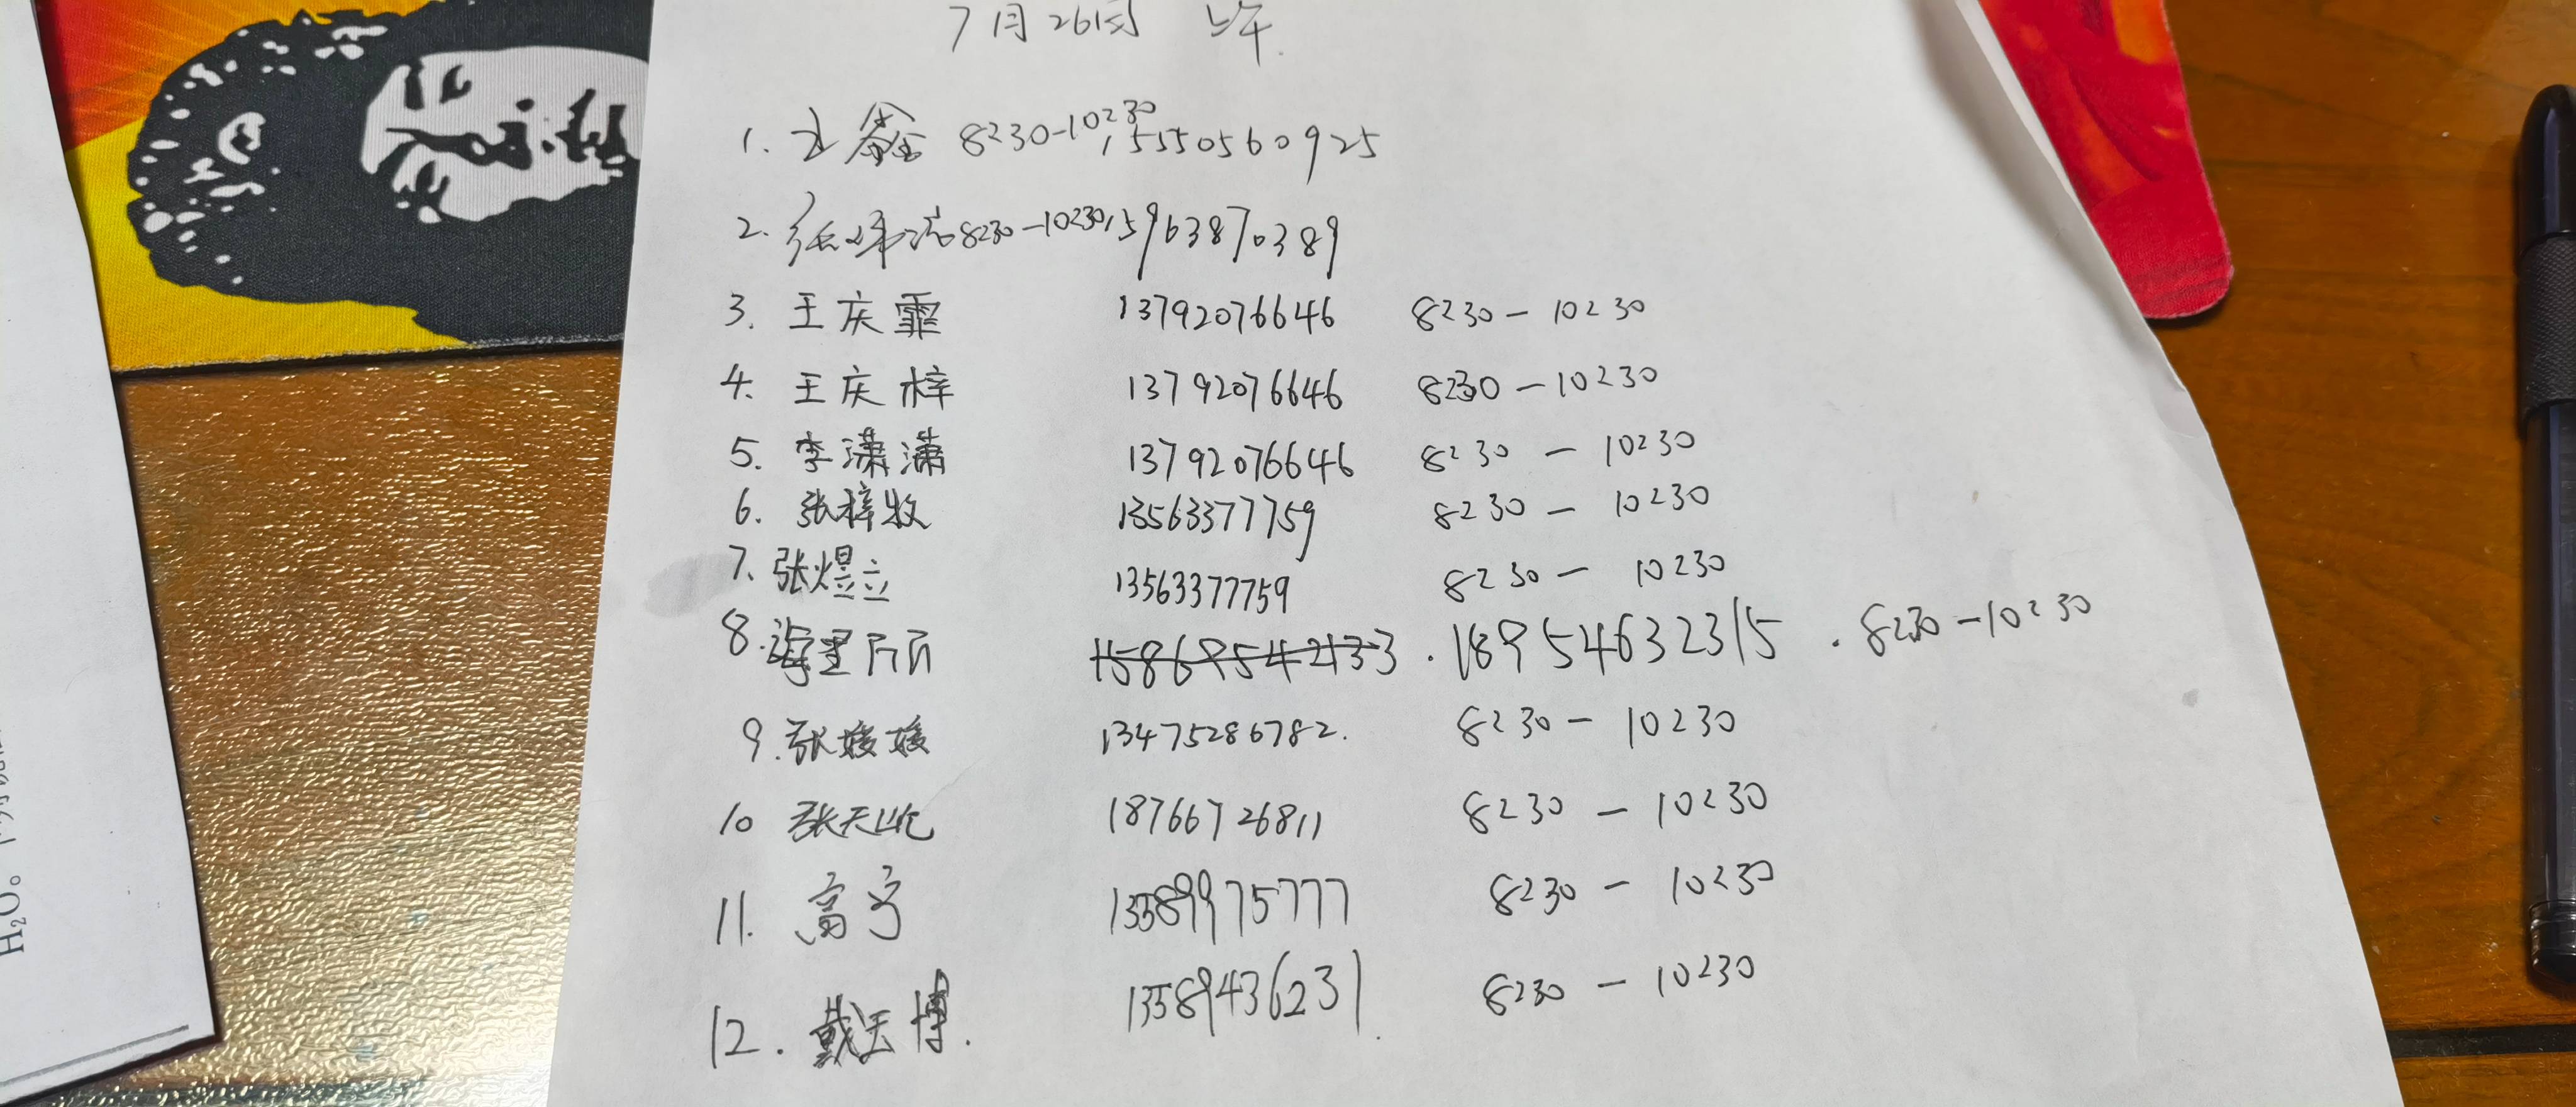 7月26日 上午
1. 鑫 8:30-10:30 15550560925
2. 张 8:30-10:30 15963870389
3. 王庆霏 13792076646 8:30-10:30
4. 王庆梓 13792076646 8:30-10:30
5. 李潇潇 13792076646 8:30-10:30
6. 张梓牧 13563377759 8:30-10:30
7. 张煜立 13563377759 8:30-10:30
8. 15869542133 . 18954632315 . 8:30-10:30
9. 张媛媛 13475286782. 8:30-10:30
10 张天屹 18766726811 8:30-10:30
11. 高宇 13589975777 8:30-10:30
12. 戴天博. 13589436231. 8:30-10:30
H₂O。